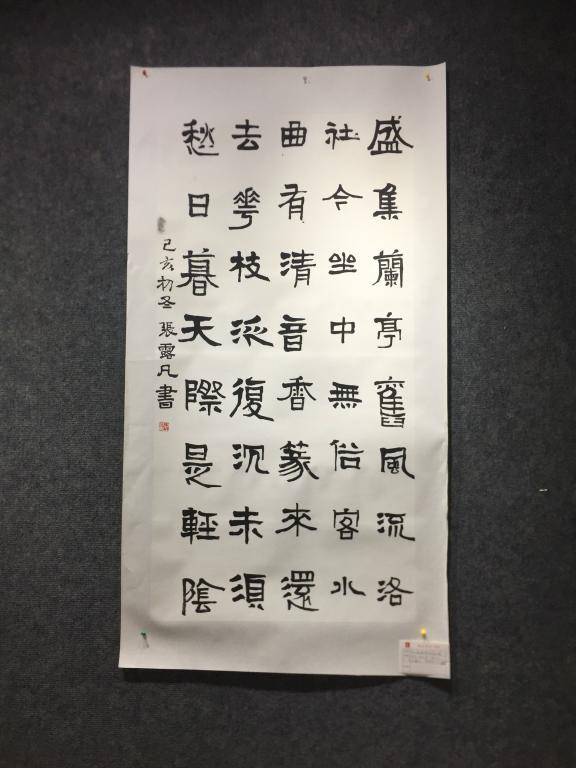 盛集蘭亭舊風流洛
社今坐中無俗客水
曲有清音香篆來還
去花枝泛復沉未須
愁日暮天際是輕陰
己亥初冬張露凡書